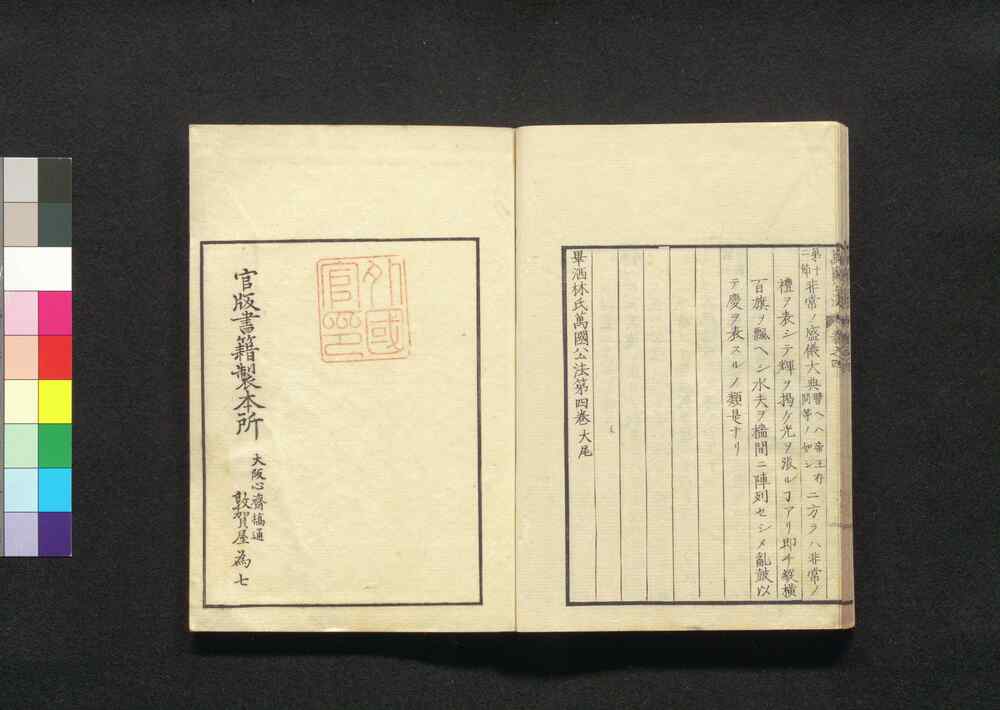 第十二節 非常ノ盛儀大典 譬ヘハ帝王有間等ノ如シ ニ方ラハ非常ノ
禮ヲ表シテ輝ヲ掲ケ光ヲ張ルヿアリ即チ縱横
百旗ヲ飄ヘシ水夫ヲ檣間ニ陣列セシメ亂鼓以
テ慶ヲ表スルノ類是ナリ
畢洒林氏萬國公法第四卷 大尾
外國
官印
官版書籍製本所
大阪心齋橋通
敦賀屋為七